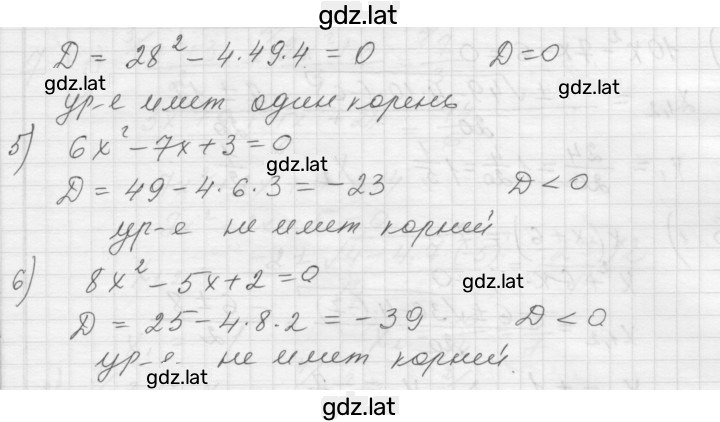 gdz.lat
D = 28² - 4·49·4 = 0 D=0
gdz.lat
gdz.lat
ур-е имет один корень
5) 6x² - 7x + 3 = 0
gdz.lat
D = 49 - 4·6·3 = -23 D < 0
gdz.lat
ур-е не имет корний
6) 8x² - 5x + 2 = 0
gdz.lat
D = 25 - 4·8·2 = -39 D < 0
ур-е не имет корний.
gdz.lat
gdz.lat